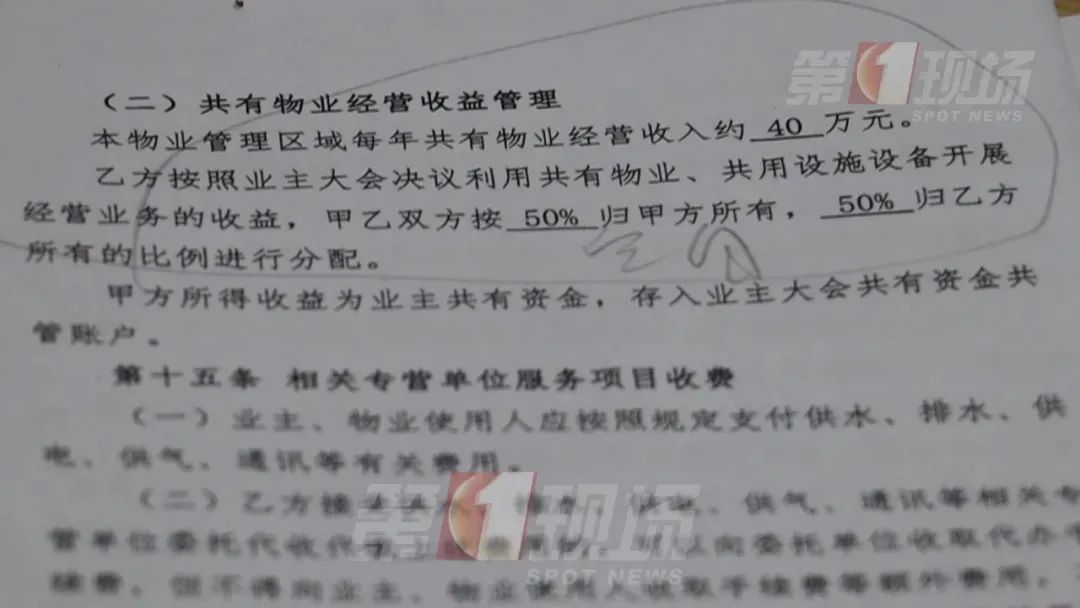 第1现场
SPOT NEWS
（二）共有物业经营收益管理
本物业管理区域每年共有物业经营收入约 40 万元。
乙方按照业主大会决议利用共有物业、共用设施设备开展
经营业务的收益，甲乙双方按 50% 归甲方所有， 50% 归乙方
所有的比例进行分配。
甲方所得收益为业主共有资金，存入业主大会共有资金共
管账户。
第十五条 相关专营单位服务项目收费
（一）业主、物业使用人应按照规定支付供水、排水、供
电、供气、通讯等有关费用。
（二）乙方接 水、排水、供电、供气、通讯等相关专
营单位委托代收 费用的，可以向委托单位收取代办手
续费，但不得向业主、物业使用人收取手续费等额外费用。
第1现场
SPOT NEWS